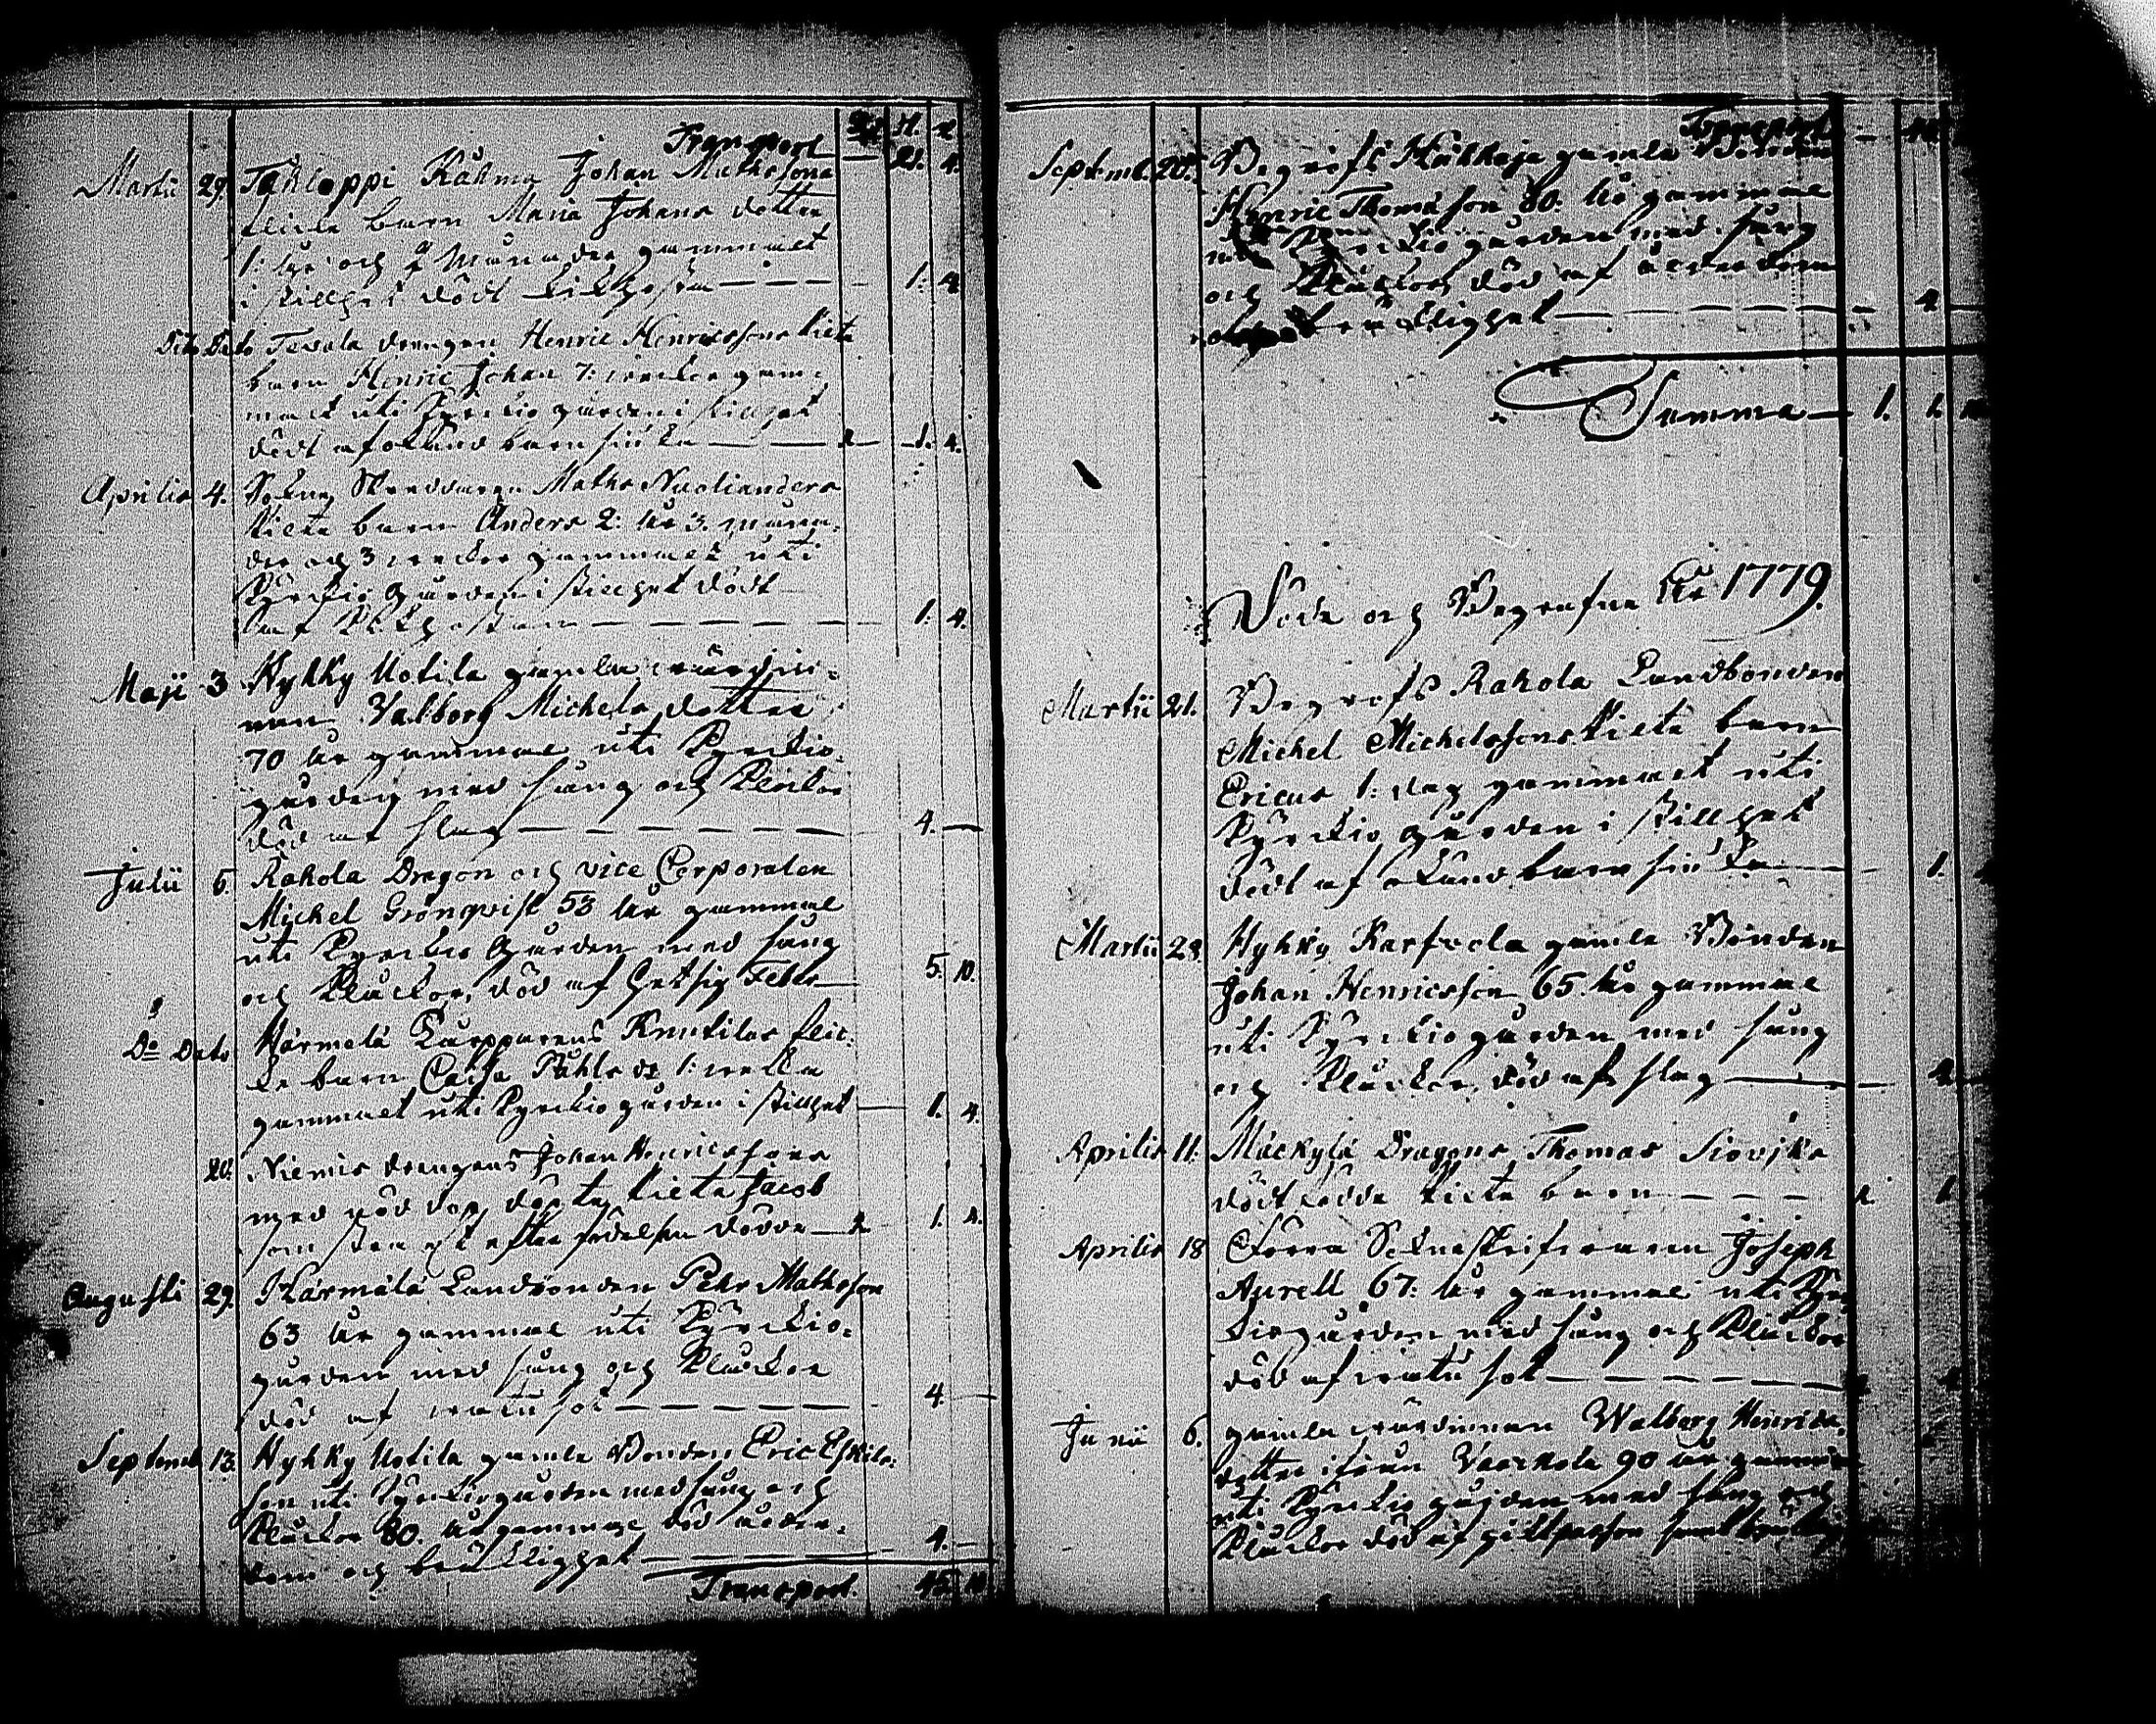 Transport
Martii 29. Takloppi Råhma Johan Mathssons
flicke barn Maria Johans dotter
1: åhr och 2 månader gammalt
i stillhet död kikhosta — 1: 4
Dito Dato Tevala drengen Henric Henricssons lilla
barn Henric Johan 7: veckor gam=
malt uti Kyrckio gården i stillhet
dödt af okänd barn siuka — 1. 4.
Aprilis 4. Sokne Skreddaren Maths
lilla barn Anders 2: åhr 3. måna=
der och 3 veckor gammalt uti
Kyrckio gården i stillhet dödt
af Kikhostan — 1. 4.
Maji 3 Hykky Uotila gamla värdin=
nan Valborg Michels dotter
70 åhr gammal uti Kyrckio
gården med sång och Klockor
död af slag — 4. —
Julii 5. Rahola Dragon och vice Corporalen
Michel Grönqvist 53 åhr gammal
uti Kyrckio Gården med sång
och Klockor, död af Hetsig Feber — 5. 10.
Do Dato Härmälä Knutilas flic=
ke barn Caisa Påhls dr 1: vecka
gammalt uti Kyrckio gården i stillhet — 1. 4.
20. Niemis drengens Johan Henricssons
med nöd dop döpta lilla Jacob
som strax efter födelsen dödde — 1. 4.
Augusti 29. Härmälä Landbonden Pehr Mathsson
63 åhr gammal uti Kyrckio=
gården med sång och Klockor
död af vatu sot — 4. —
Septemb 13. Hykky Uotila gamla Bonden Eric Eskils=
son uti Kyrckiogården med sång och
Klockor 80. åhr gammal, död ålder=
dom och bräcklighet — 4. —
Transport.
Transport
Septemb. 20. Begrofs gamla Bonden
Henric Thomasson 80. åhr gammal
Kyrckio gården med sång
och Klockor död af ålderdom
bräcklighet — 4 —
Summa — 1. 1.
Döde och Begrafne åhr 1779.
Martii 21. Begrofs Rahola Landbonden
Michel Michelssons lilla barn
Ericus 1: dag gammalt uti
Kyrckio gården i stillhet
dödt af okänd barn siuka — 1.
Martii 28. Hykky Karfvola gamla Bonden
Johan Henricsson 65. åhr gammal
uti Kyrckio gården med sång
och Klockor, död af slag — 4
Aprilis 11. Mäckylä Dragons Thomas
dödfödda lilla barn — 1
Aprilis 18 Förra Sokneskrifvaren Joseph
Aurell 67: åhr gammal uti Kyrc
kiogården med sång och Klockor
död af vatu sot —
Junii 6. gamla värdinnan Walborg Henrics
dotter ifrån Vaarkola 90 åhr gammal
uti Kyrckio gården med sång och
Klockor död af